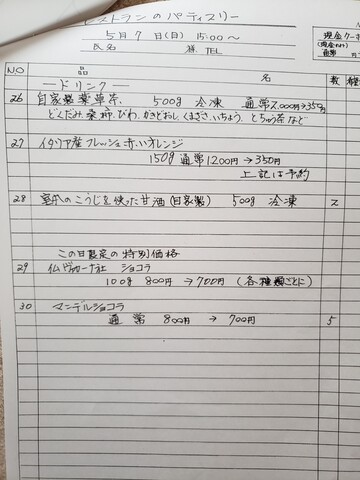 レストランのパティスリー
5月7日(日) 15:00〜
氏名 様 TEL
現金クーポ
NO 品 名 数
ードリンクー
26 自家製薬草茶. 500g 冷凍 通常2,000円→350円
どくだみ、桑、柿、びわ、かきどおし、くまざさ、いちょう、とちゅう茶など
27 イタリア産フレッシュ赤いオレンジ
150g 通常1200円→350円
上記は予約
28 室本のこうじを使った甘酒(自家製) 500g 冷凍 2
この日限定の特別価格
29 仏ヴァローナ社 ショコラ
100g 800円→700円 (各種類ごとに)
30 マンデルショコラ
通常 800円→700円 5